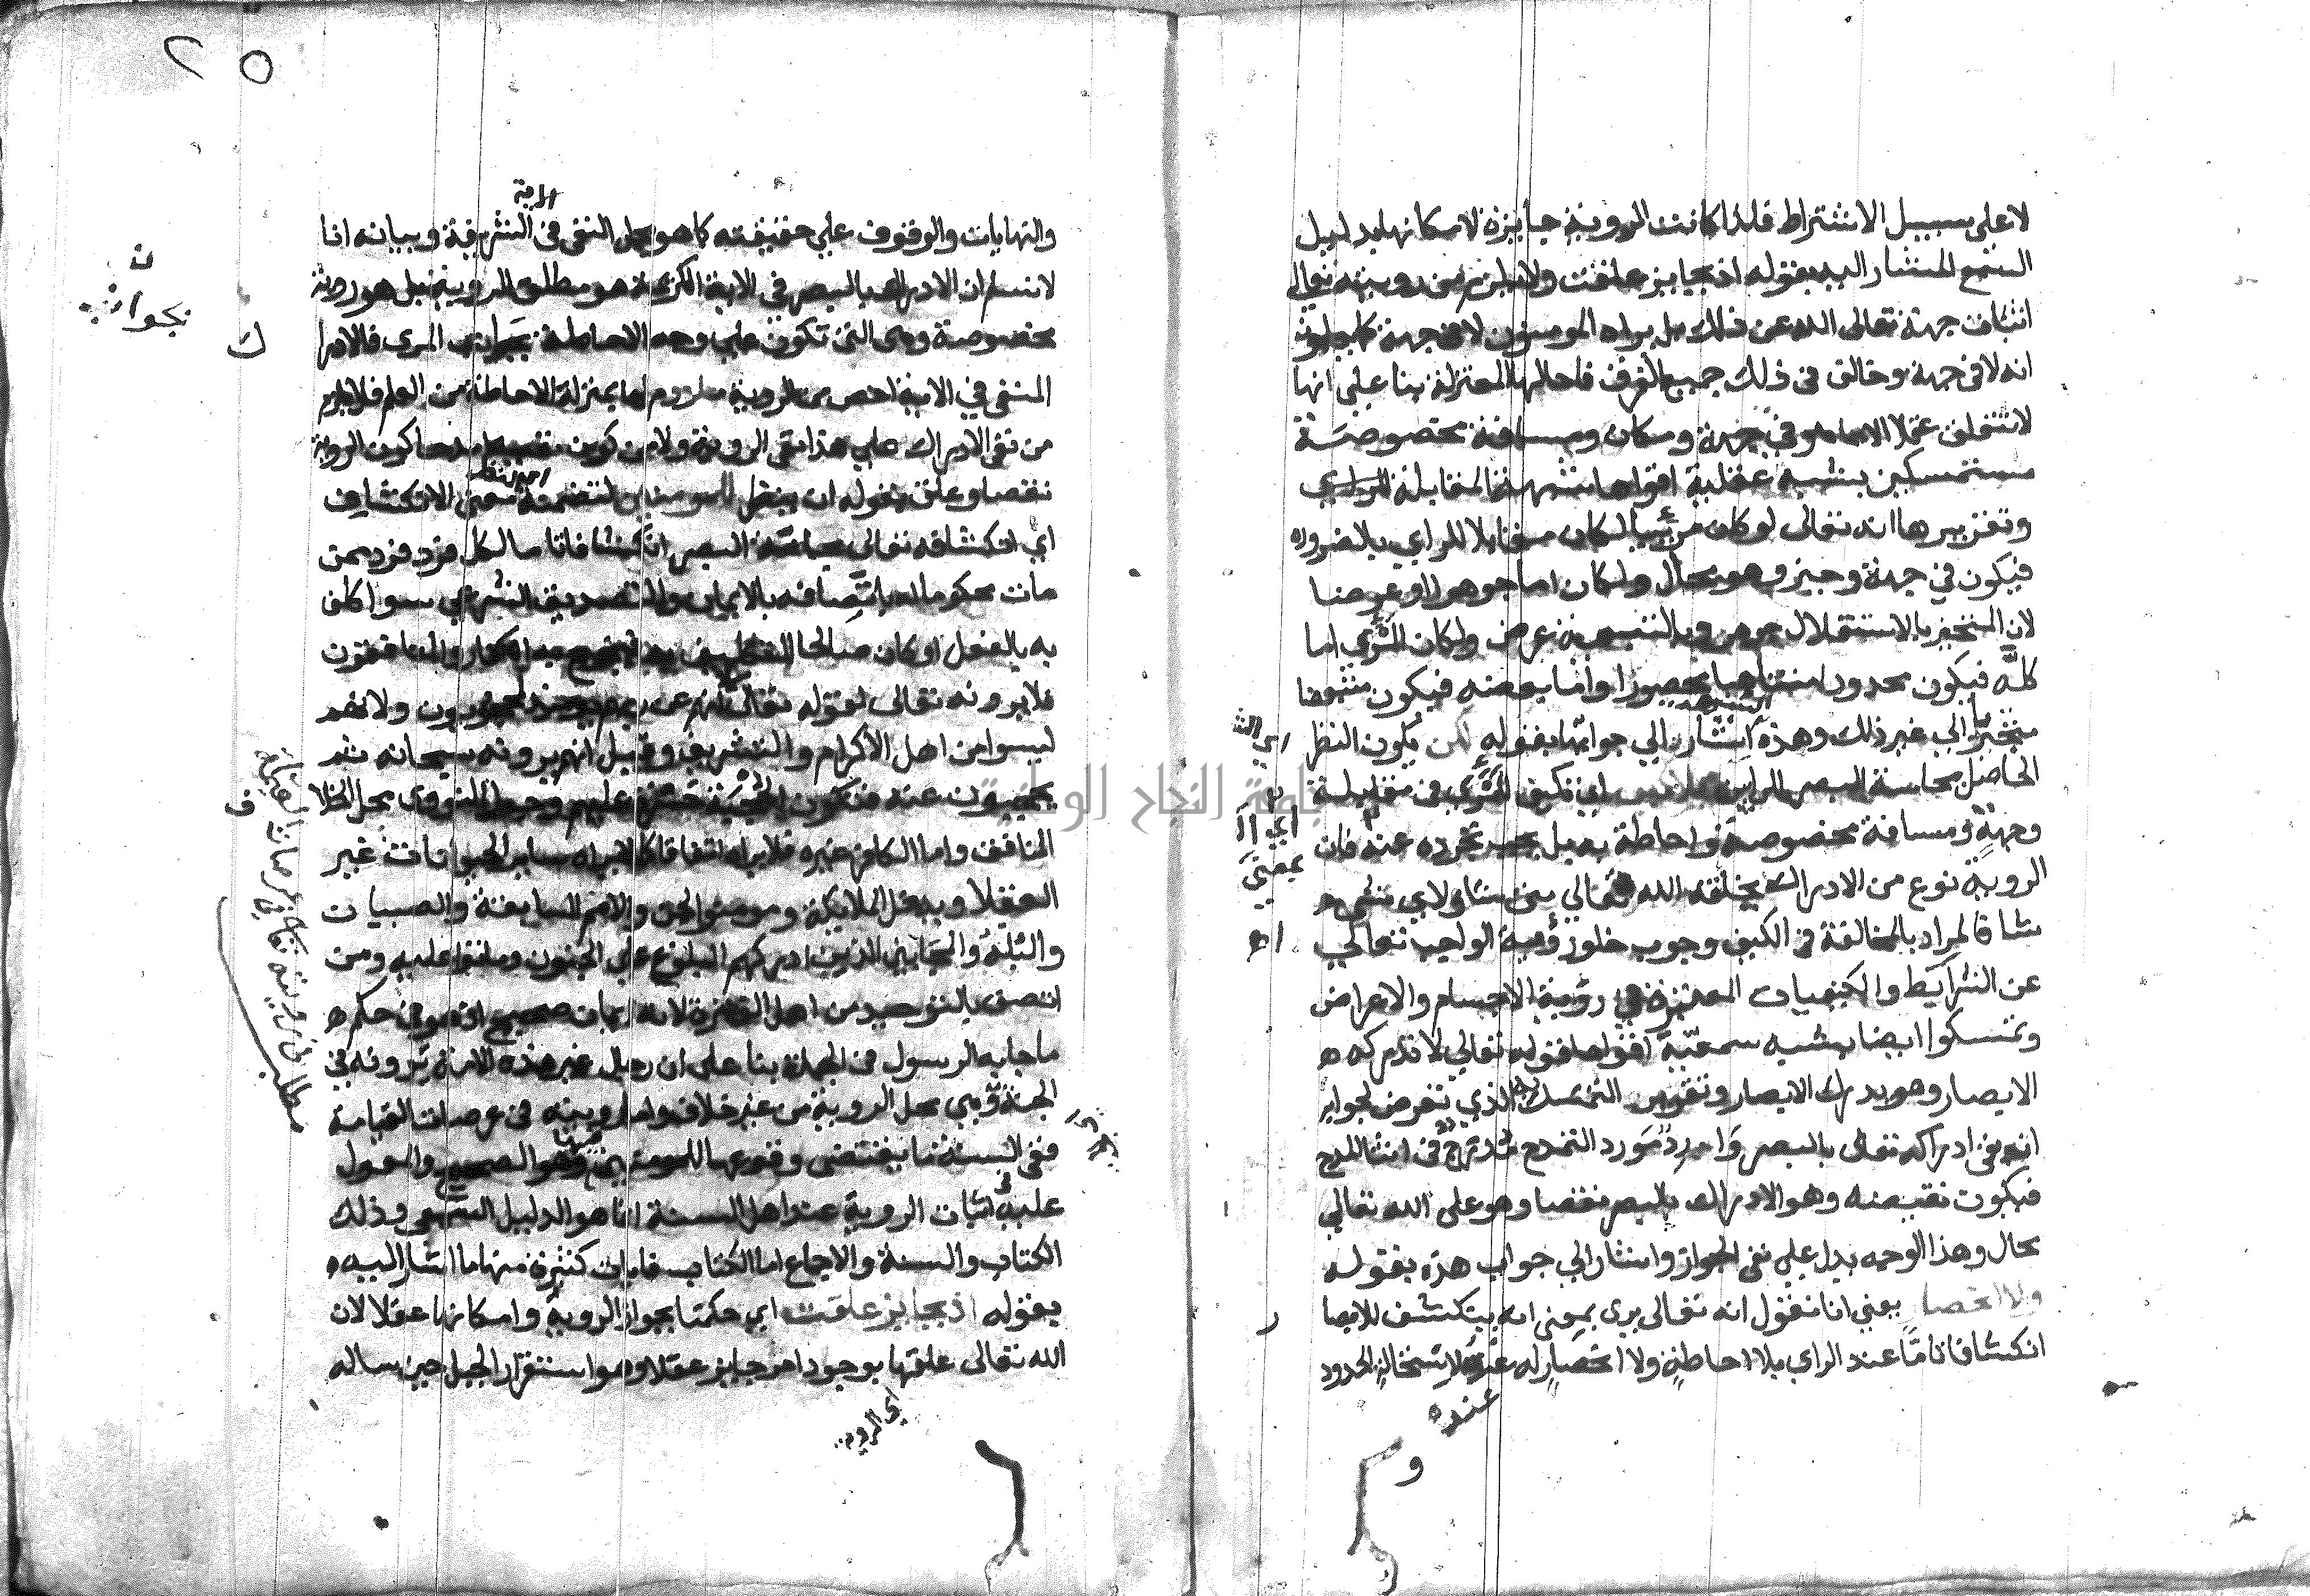 لا على سبيل الاشتراط فلذا كانت الروية جايزة لامكانها بدليل
السمع المشار اليه بقوله اذ بجايز علقت ولا يلزم من رويته تعالى
اثبات جهة تعالى الله عن ذلك بل يراه المومنون لا في جهة كما يعلمون
انه لا في جهة وخالف في ذلك جميع الفرق فاحالها المعتزلة بنا على انها
لا تتعلق عقلا الا بما هو في جهة ومكان ومسافة مخصوصة
متمسكين بشبه عقلية اقواها شبهة المقابلة للراي
وتقريرها انه تعالى لو كان مرئيا لكان مقابلا للراي بالضروره
فيكون في جهة وحيز وهو محال ولكان اما جوهرا او عرضا
لان المتحيز بالاستقلال جوهر وبالتبعية عرض ولكان المرئي اما
كله فيكون محدودا متناهيا محصورا واما بعضه فيكون متبعضا
متجزيا الى غير ذلك وهذه اشار الى جوابها بقوله لكن يكون النظر
الحاصل بحاسة البصر للرايين بلا كيف اي تكيف للمرئي من مقابلة
وجهة ومسافة مخصوصة واحاطة به بل بحد تجرده عنه فان
الروية نوع من الادراك يخلقه الله تعالى متى شاء ولاي شي
شا فالمراد بالمخالفة في الكيف وجوب خلو رؤية الواجب تعالى
عن الشرايط والكيفيات المعتبرة في رؤية الاجسام والاعراض
وتمسكوا ايضا بشبه سمعية اقواها قوله تعالى لا تدركه
الابصار وهو يدرك الابصار وتقرير التمسك بها الذي تعرض لجوابه
انه نفى ادراكه تعالى بالبصر وارد مورد التمدح مدرج في اثنا المدح
فيكون نقيضه وهو الادراك بالبصر نقصا وهو على الله تعالى
محال وهذا الوجه يدل على نفي الجواز واشار الى جواب هذه بقوله
ولا انحصار يعني انا نقول انه تعالى يرى بمعنى انه ينكشف للابصار
انكشافا تاما عند الراي بلا احاطة ولا انحصار له عنده لاستحالة الحدود
عنده
والنهايات والوقوف على حقيقته كما هو محمل النفي في الشريفة وبيانه انا
الاية
لا نسلم ان الادراك بالبصر في الاية الكريمة هو مطلق الروية بل هو روية
مخصوصة وهي التي تكون على وجه الاحاطة بجوانب المرى فالادراك
المنفي في الاية اخص من الروية ملزوم لها بمنزلة الاحاطة من العلم فلا يلزم
من نفي الادراك على هذا نفي الروية ولا من كون نفيه مدحا كون الروية
نقصا وعلق بقوله ان ينظر للمومنين لتضمنه معنى الانكشاف
اي انكشافه تعالى بحاسة البصر انكشافا تاما لكل فرد فرد ممن
مات محكوما له باتصافه بالايمان والتصديق الشرعي سوا كلف
به بالفعل او كان صالحا للتكليف به فخرج به الكفار والمنافقون
فلا يرونه تعالى لقوله تعالى انهم عن ربهم يومئذ لمحجوبون ولانهم
ليسوا من اهل الاكرام والتشريف وقيل انهم يرونه سبحانه ثم
يحجبون عنه فتكون الحجبة حسرة عليهم وجعل النووي محل الخلاف
المنافق واما الكافر غيره فلا يراه اتفاقا كما لا يراه ساير الحيوانات غير
العقلا ويدخل الملايكة ومومنوا الجن والامم السابقة والصبيان
والبله والمجانين الذين ادركهم البلوغ على الجنون وماتوا عليه ومن
اتصف بالتوحيد من اهل الفترة لانه ايمان صحيح اذ هو في حكم
ما جا به الرسول في الجملة بنا على ان رجال غير هذه الامة يرونه في
الجنة وهي محل الروية من غير خلاف واما رويته في عرصات القيامة
ففي السنة ما يقتضي وقوعها للمومنين فيها وهو الصحيح والمعول
عليه في اثبات الروية عند اهل السنة انما هو الدليل السمعي وذلك
الكتاب والسنة والاجماع اما الكتاب فايات كثيرة منها ما اشار اليه
بقوله اذ بجايز علقت اي حكمنا بجواز الروية وامكانها عقلا لان
الله تعالى علقها بوجود امر جايز عقلا وهو استقرار الجبل حين ساله
اي الروية